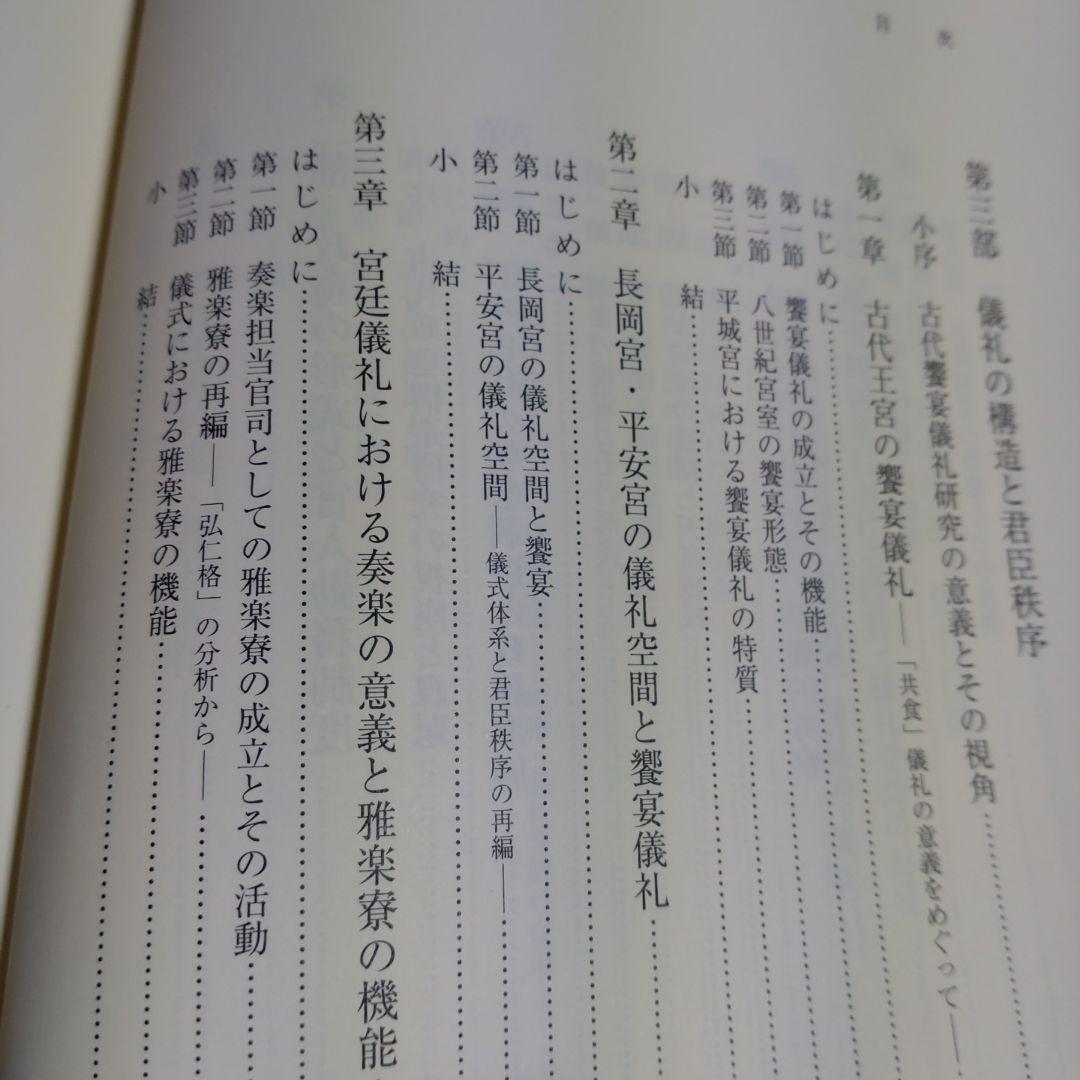 目次
第三部　儀礼の構造と君臣秩序
小序　古代饗宴儀礼研究の意義とその視角
第一章　古代王宮の饗宴儀礼――「共食」儀礼の意義をめぐって――
はじめに
第一節　饗宴儀礼の成立とその機能
第二節　八世紀宮室の饗宴形態
第三節　平城宮における饗宴儀礼の特質
小結
第二章　長岡宮・平安宮の儀礼空間と饗宴儀礼
はじめに
第一節　長岡宮の儀礼空間と饗宴
第二節　平安宮の儀礼空間――儀式体系と君臣秩序の再編――
小結
第三章　宮廷儀礼における奏楽の意義と雅楽寮の機能
はじめに
第一節　奏楽担当官司としての雅楽寮の成立とその活動
第二節　雅楽寮の再編――「弘仁格」の分析から――
第三節　儀式における雅楽寮の機能
小結